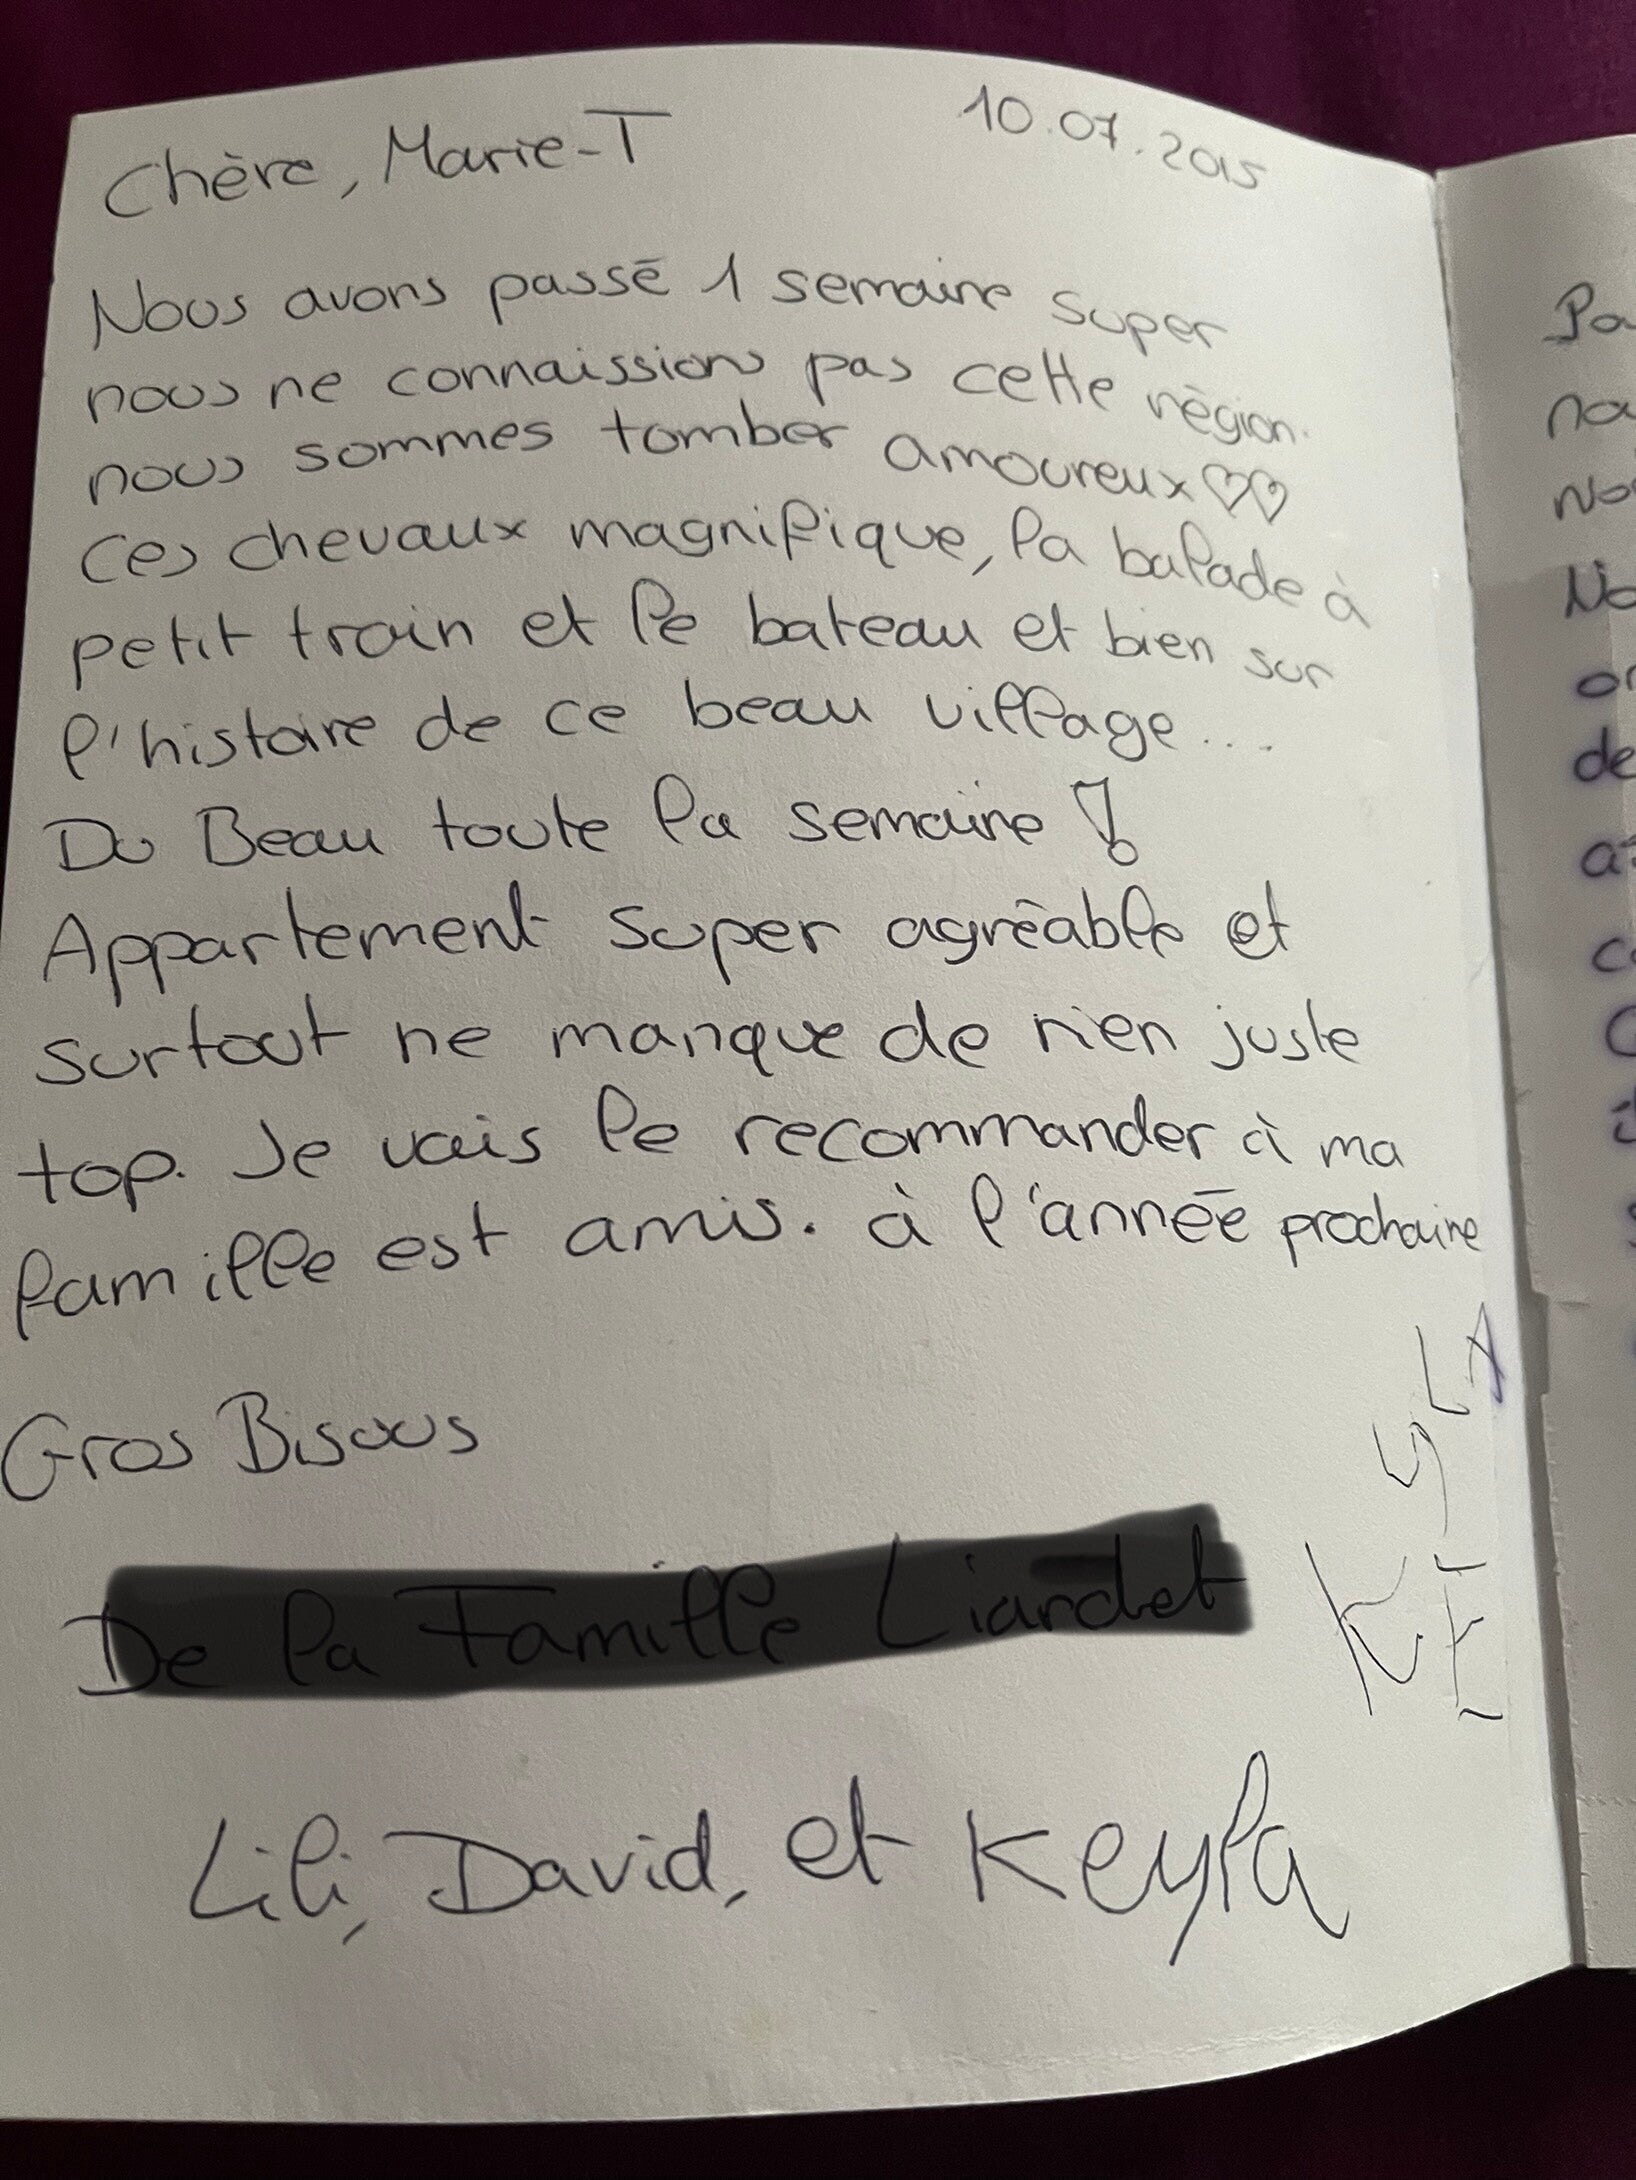 10.07.2015
Chère, Marie-T
Nous avons passé 1 semaine super
nous ne connaissions pas cette région.
nous sommes tomber amoureux ♡♡
Ces chevaux magnifique, la balade à
petit train et le bateau et bien sur
l'histoire de ce beau village...
Du Beau toute la semaine !
Appartement super agréable et
surtout ne manque de rien juste
top. Je vais le recommander à ma
famille est amis. à l'année prochaine
Gros Bisous
KEYLA
Lili, David, et Keyla